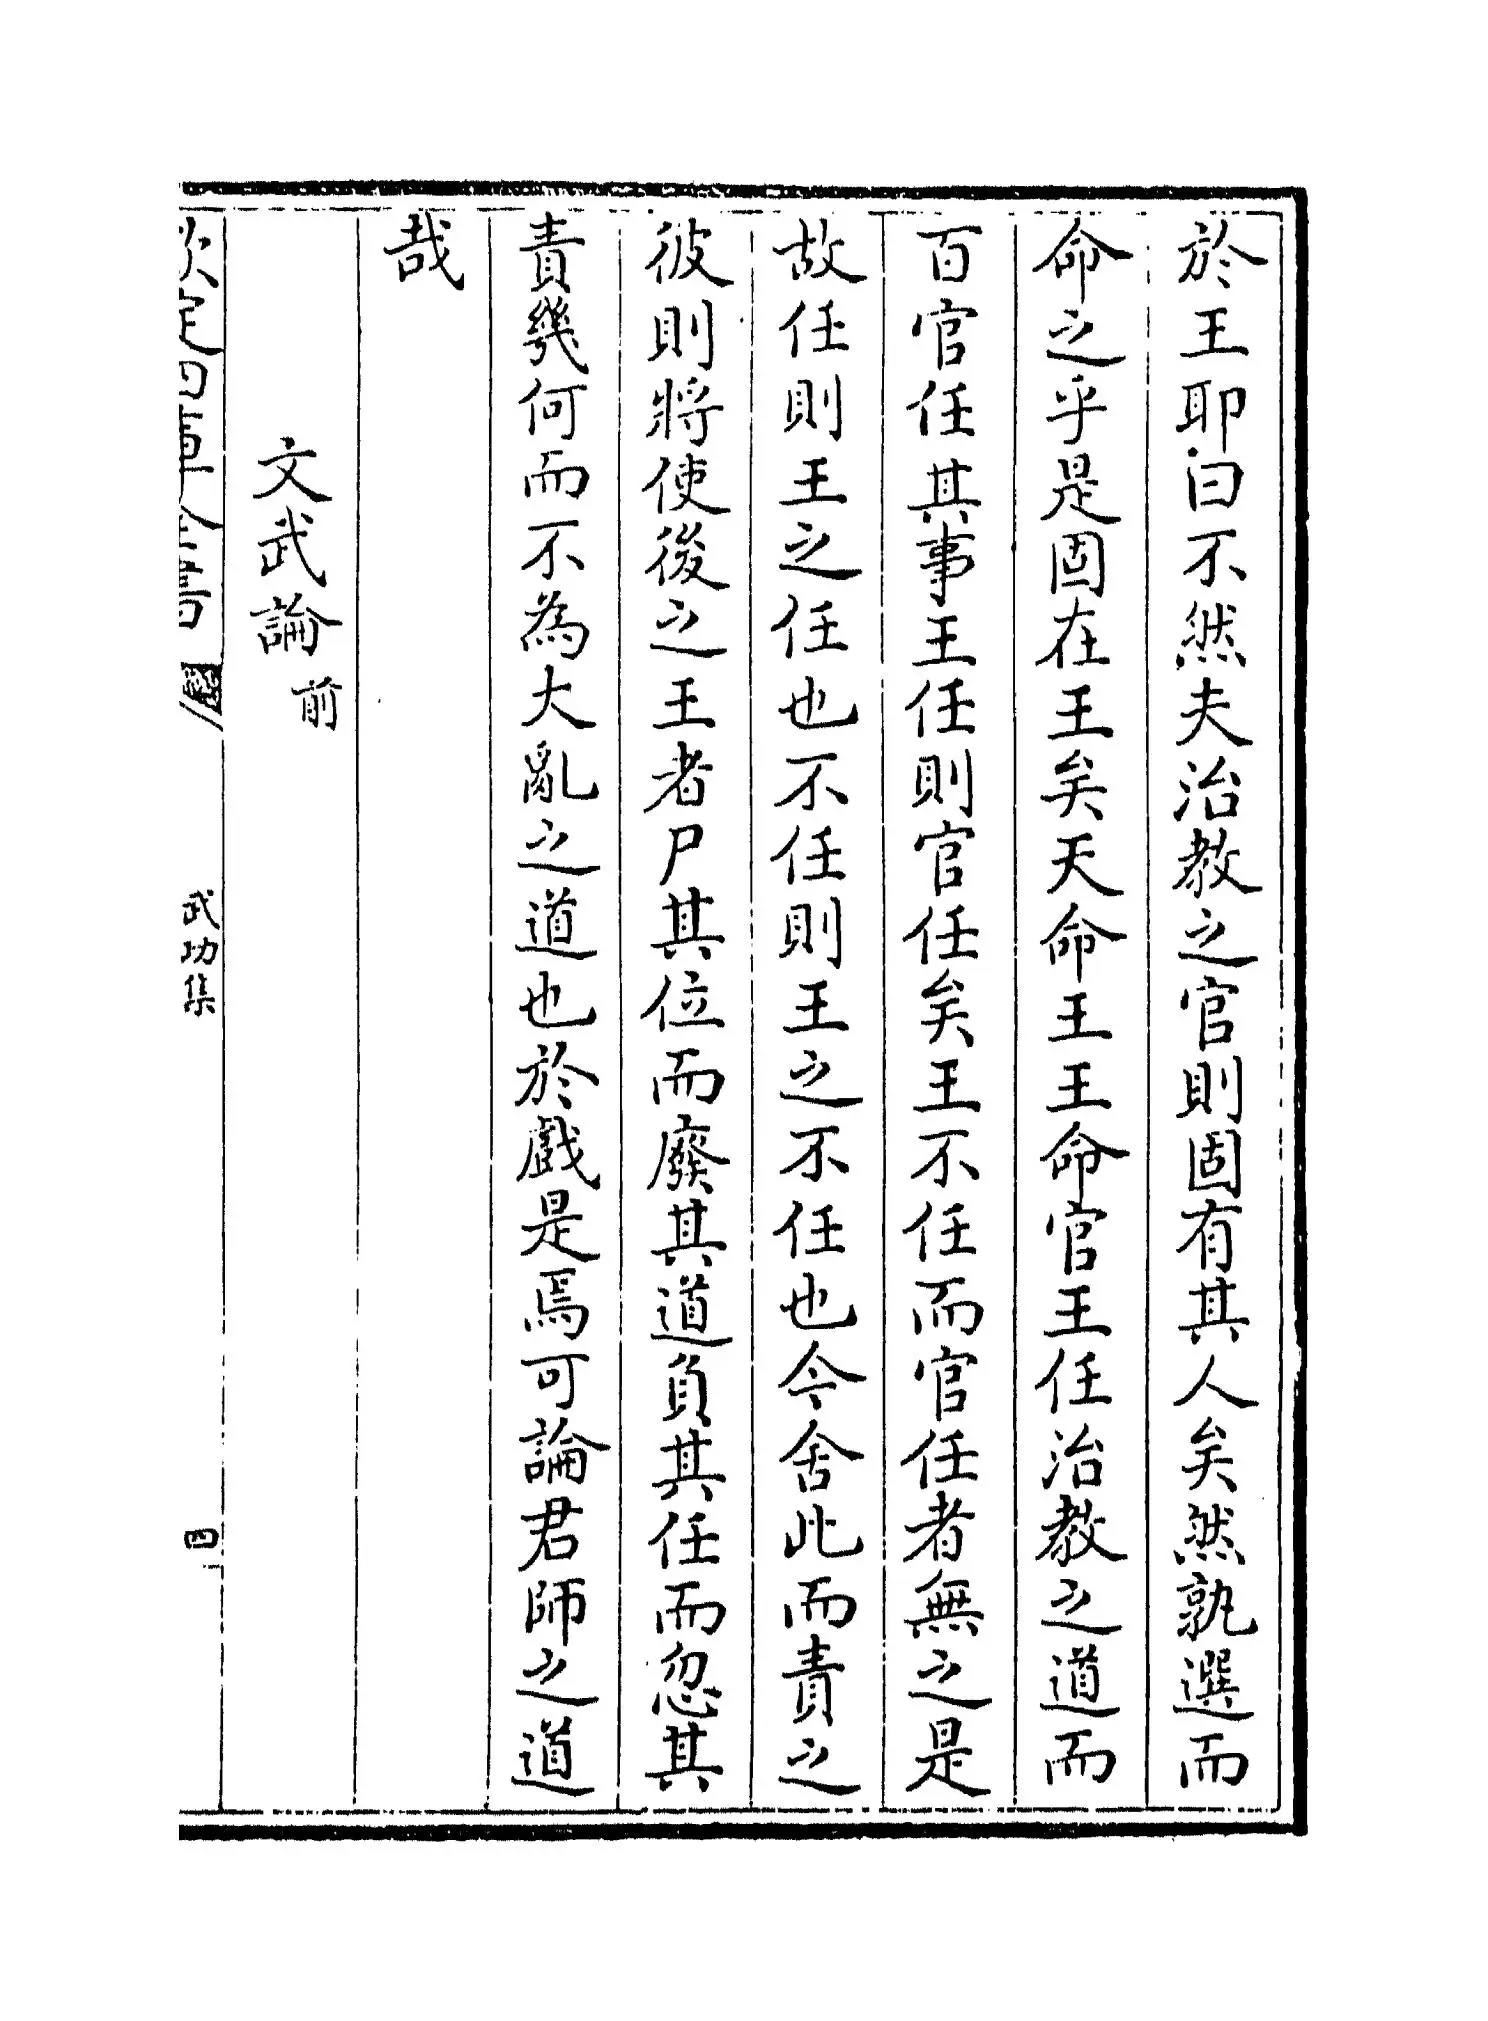 於王耶曰不然夫治教之官則固有其人矣然孰選而
命之乎是固在王矣天命王王命官王任治教之道而
百官任其事王任則官任矣王不任而官任者無之是
故任則王之任也不任則王之不任也今舍此而責之
彼則將使後之王者尸其位而廢其道負其任而忽其
責幾何而不為大亂之道也於戲是焉可論君師之道
哉
文武論前
欽定四庫全書
武功集
四